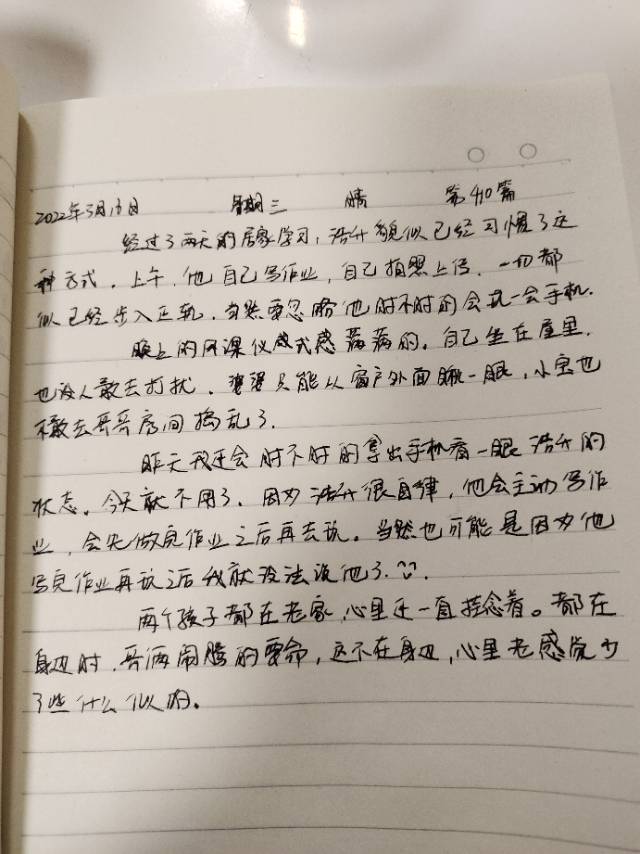 2022年3月16日 星期三 晴 第410篇
经过了两天的居家学习，浩升貌似已经习惯了这
种方式。上午，他自己写作业，自己拍照上传，一切都
似已经步入正轨，当然要忽略他时不时的会玩一会手机.
晚上的网课仪式感满满的。自己坐在屋里，
也没人敢去打扰，婆婆只能从窗户外面瞅一眼，小宝也
不敢去哥哥房间捣乱了.
昨天我还会时不时的拿出手机看一眼浩升的
状态。今天就不用了，因为浩升很自律，他会主动写作
业，会先做完作业之后再去玩。当然也可能是因为他
写完作业再玩之后我就没法说他了.
两个孩子都在老家，心里还一直挂念着。都在
身边时，哥俩闹腾的要命，这不在身边，心里老感觉少
了些什么似的。